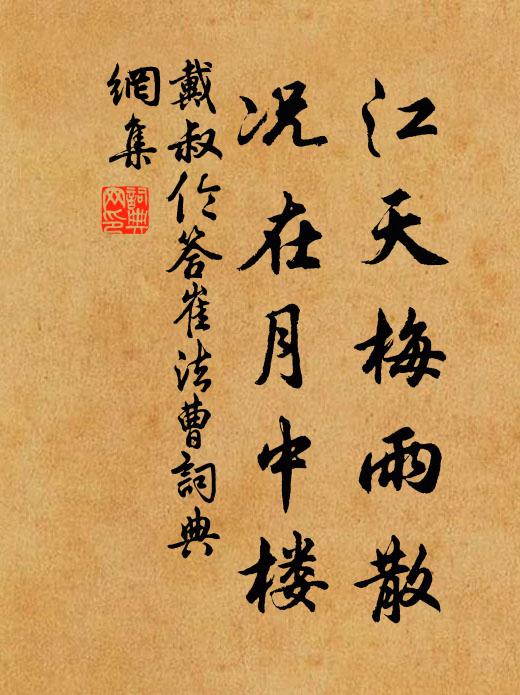 江天梅雨散
况在月中楼
戴叔伦答崔法曹詞典
網集
詞典
网印